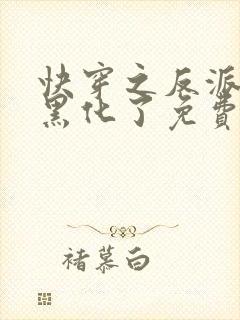 快穿之反派
黑化了免費
褚慕白